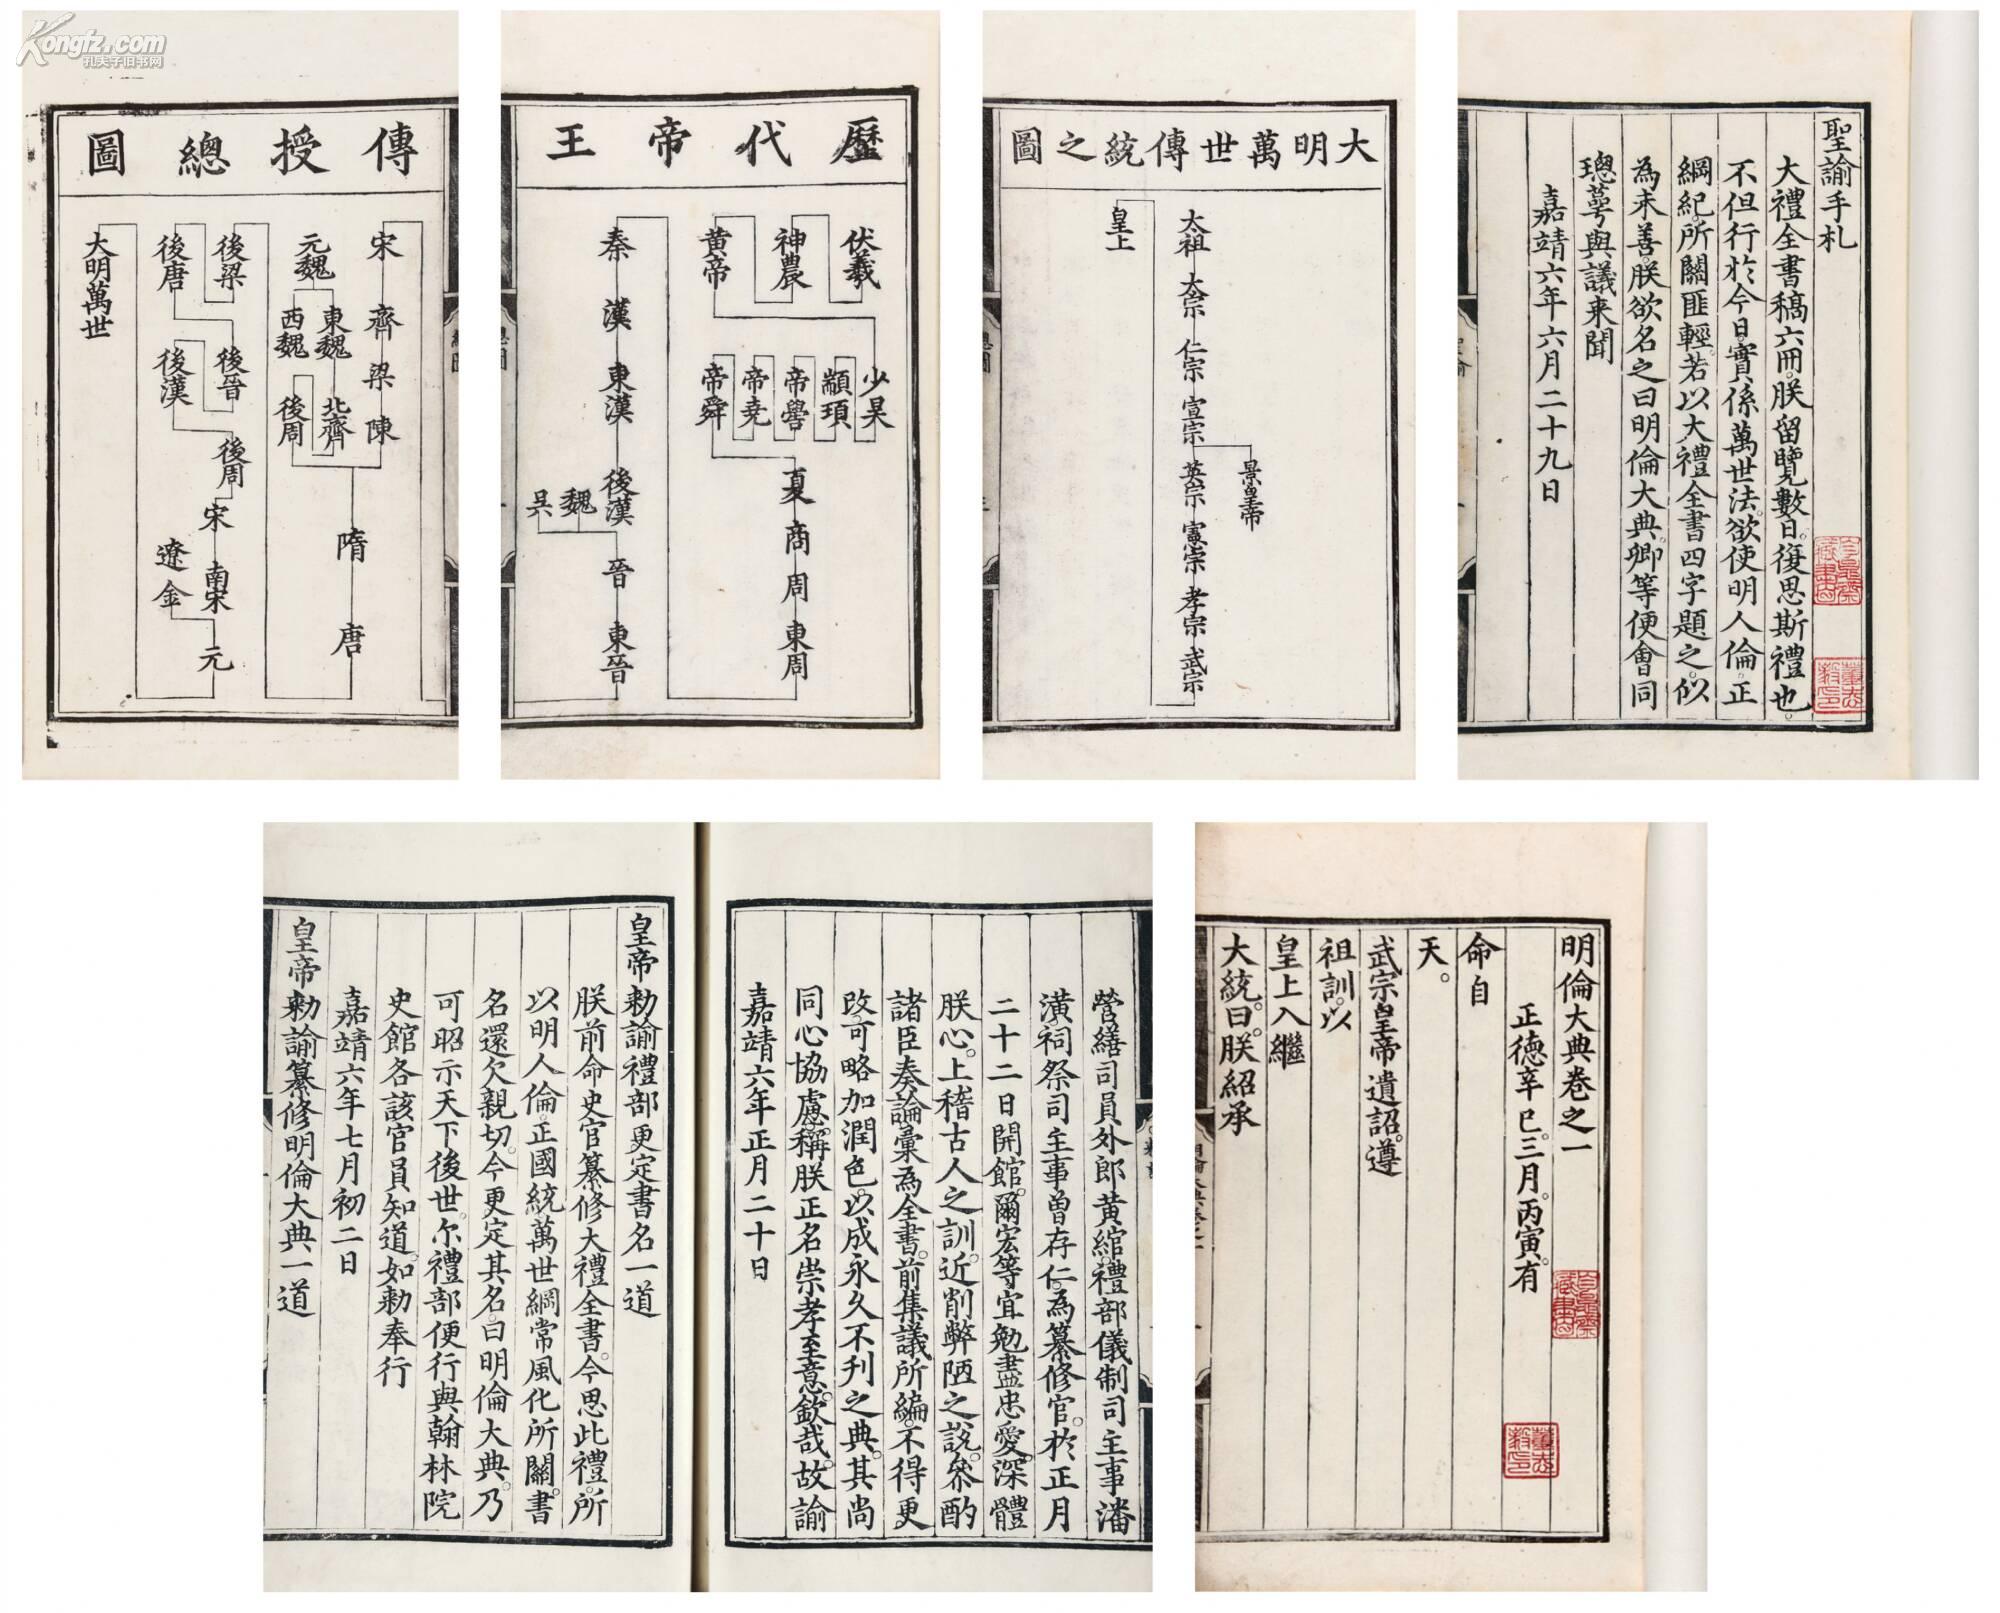 Kongfz.com
孔夫子旧书网
傳授總圖
宋 齊 梁 陳
元魏 東魏 北齊
西魏 後周
隋 唐
後梁 後晉 後周 宋 南宋 元
後唐 後漢 遼 金
大明萬世
歷代帝王
伏羲
神農
黃帝
少昊
顓頊
帝嚳
帝堯
帝舜
夏 商 周 東周
秦 漢 東漢 後漢 晉 東晉
魏
吳
大明萬世傳統之圖
景皇帝
太祖 太宗 仁宗 宣宗 英宗 憲宗 孝宗 武宗
皇上
聖諭手札
大禮全書稿六冊。朕留覽數日。復思斯禮也。
不但行於今日。實係萬世法。欲使明人倫。正
綱紀。所關匪輕。若以大禮全書四字題之。似
為未善。朕欲名之曰明倫大典。卿等便會同
璁萼與議来聞
嘉靖六年六月二十九日
營繕司員外郎黃綰。禮部儀制司主事潘
潢。祠祭司主事曾存仁。為纂修官。於正月
二十二日開館。爾宏等宜勉盡忠愛。深體
朕心。上稽古人之訓。近削弊陋之說。叅酌
諸臣奏論彙為全書。前集議所編。不得更
改。可略加潤色。以成永久不刊之典。其尚
同心協慮。稱朕正名崇孝至意。欽哉。故諭
嘉靖六年正月二十日
皇帝勅諭禮部更定書名一道
朕前命史官纂修大禮全書。今思此禮。所
以明人倫。正國統。萬世綱常風化所關。書
名還欠親切。今更定其名。曰明倫大典。乃
可昭示天下後世。尔禮部便行與翰林院
史館各該官員知道。如勅奉行
嘉靖六年七月初二日
皇帝勅諭纂修明倫大典一道
明倫大典卷之一
正德辛巳。三月。丙寅。有
命自
天。
武宗皇帝遺詔。遵
祖訓。以
皇上入繼
大統。曰。朕紹承